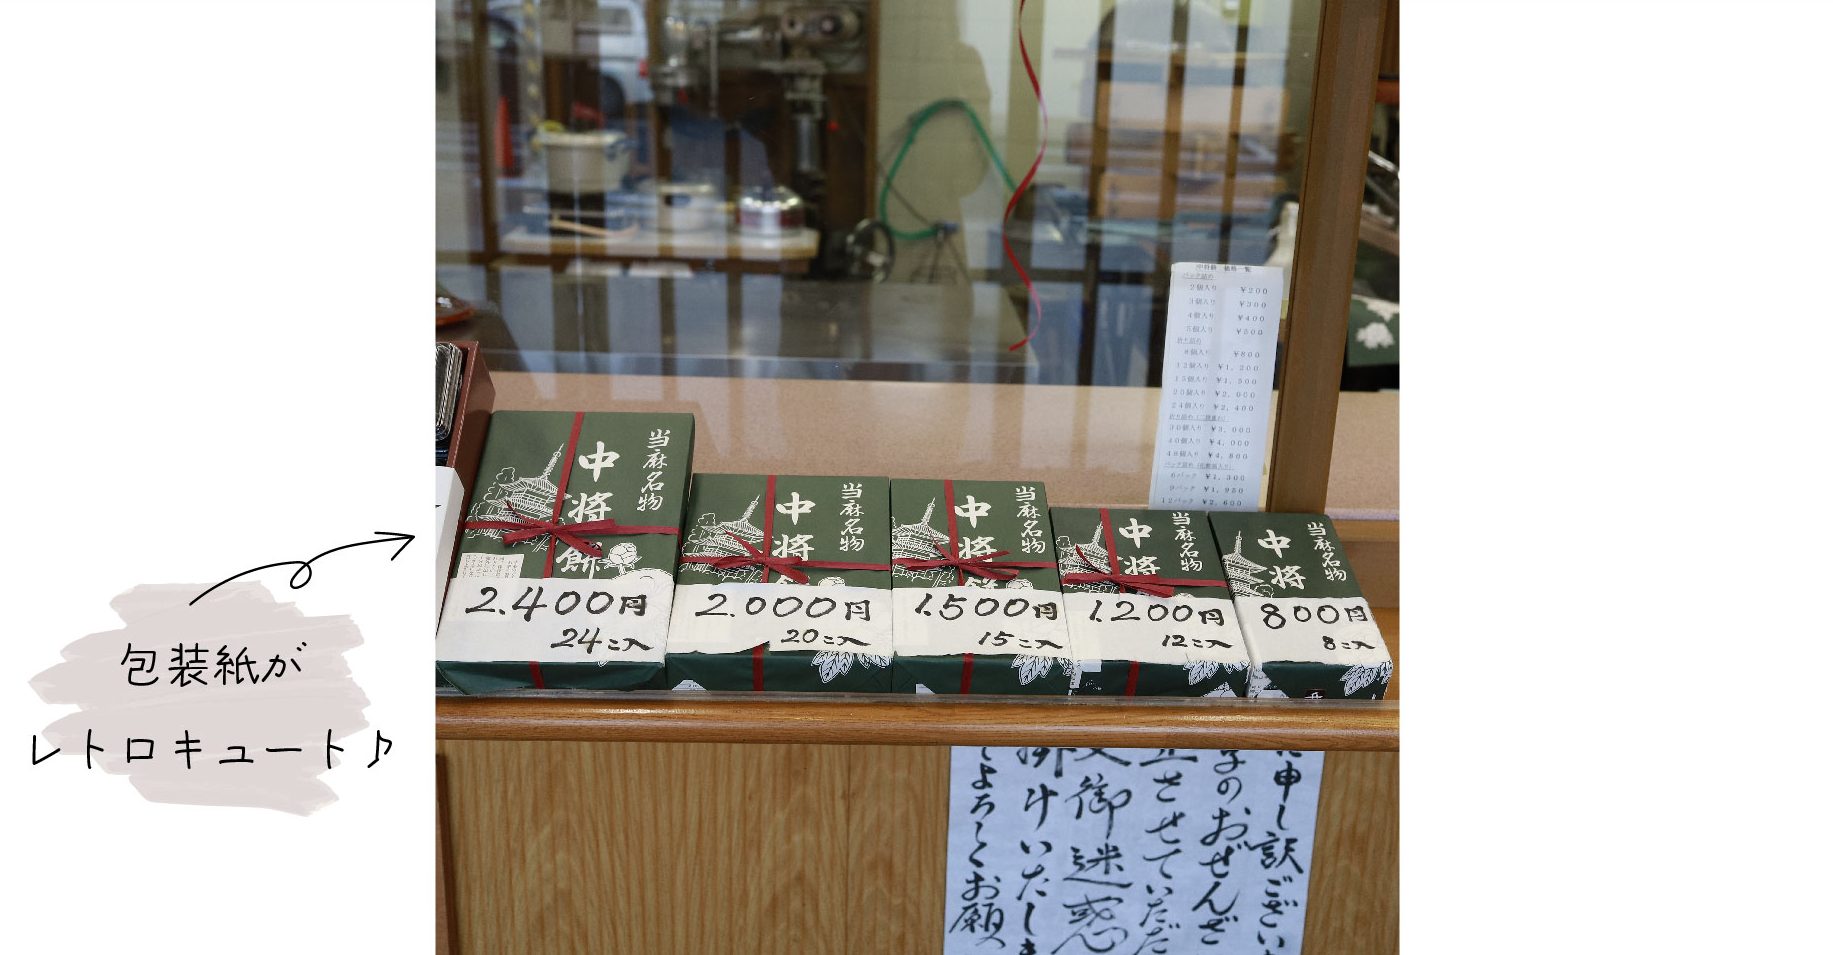 包装紙が
レトロキュート♪
中将餅 価格一覧
パック詰め
2個入り ￥200
3個入り ￥300
4個入り ￥400
5個入り ￥500
折り詰め
8個入り ￥800
12個入り ￥1,200
15個入り ￥1,500
20個入り ￥2,000
24個入り ￥2,400
30個入り ￥3,000
40個入り ￥4,000
48個入り ￥4,800
6パック ￥1,300
9パック ￥1,950
12パック ￥2,600
当麻名物
中将餅
2.400円
24こ入
当麻名物
中将
2.000円
20こ入
当麻名物
中将餅
1.500円
15こ入
当麻名物
中将
1.200円
12こ入
当麻名物
中将
800円
8こ入
に申し訳ござい
のおぜんざ
止させていただ
御迷惑
掛けいたしま
よろしくお願